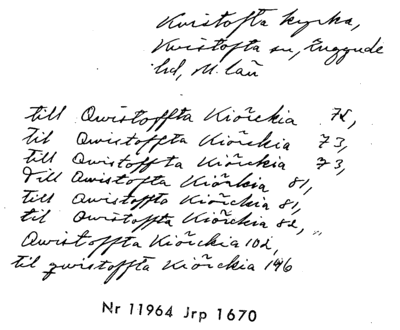 Kvistofta kyrka,
Kvistofta sn, Luggude
hd, M. län
till Qwistoffta Kiörckia 72,
til Qwistoffta Kiörckia 73,
till Qwistoffta Kiörckia 73,
Till Qwistofta Kiörkia 81,
till Qwistoffta Kiörckia 81,
til Qwistoffta Kiörckia 82, "
Qwistoffta Kiörckia 102,
til qwistoffta Kiörckia 146
Nr 11964 Jrp 1670